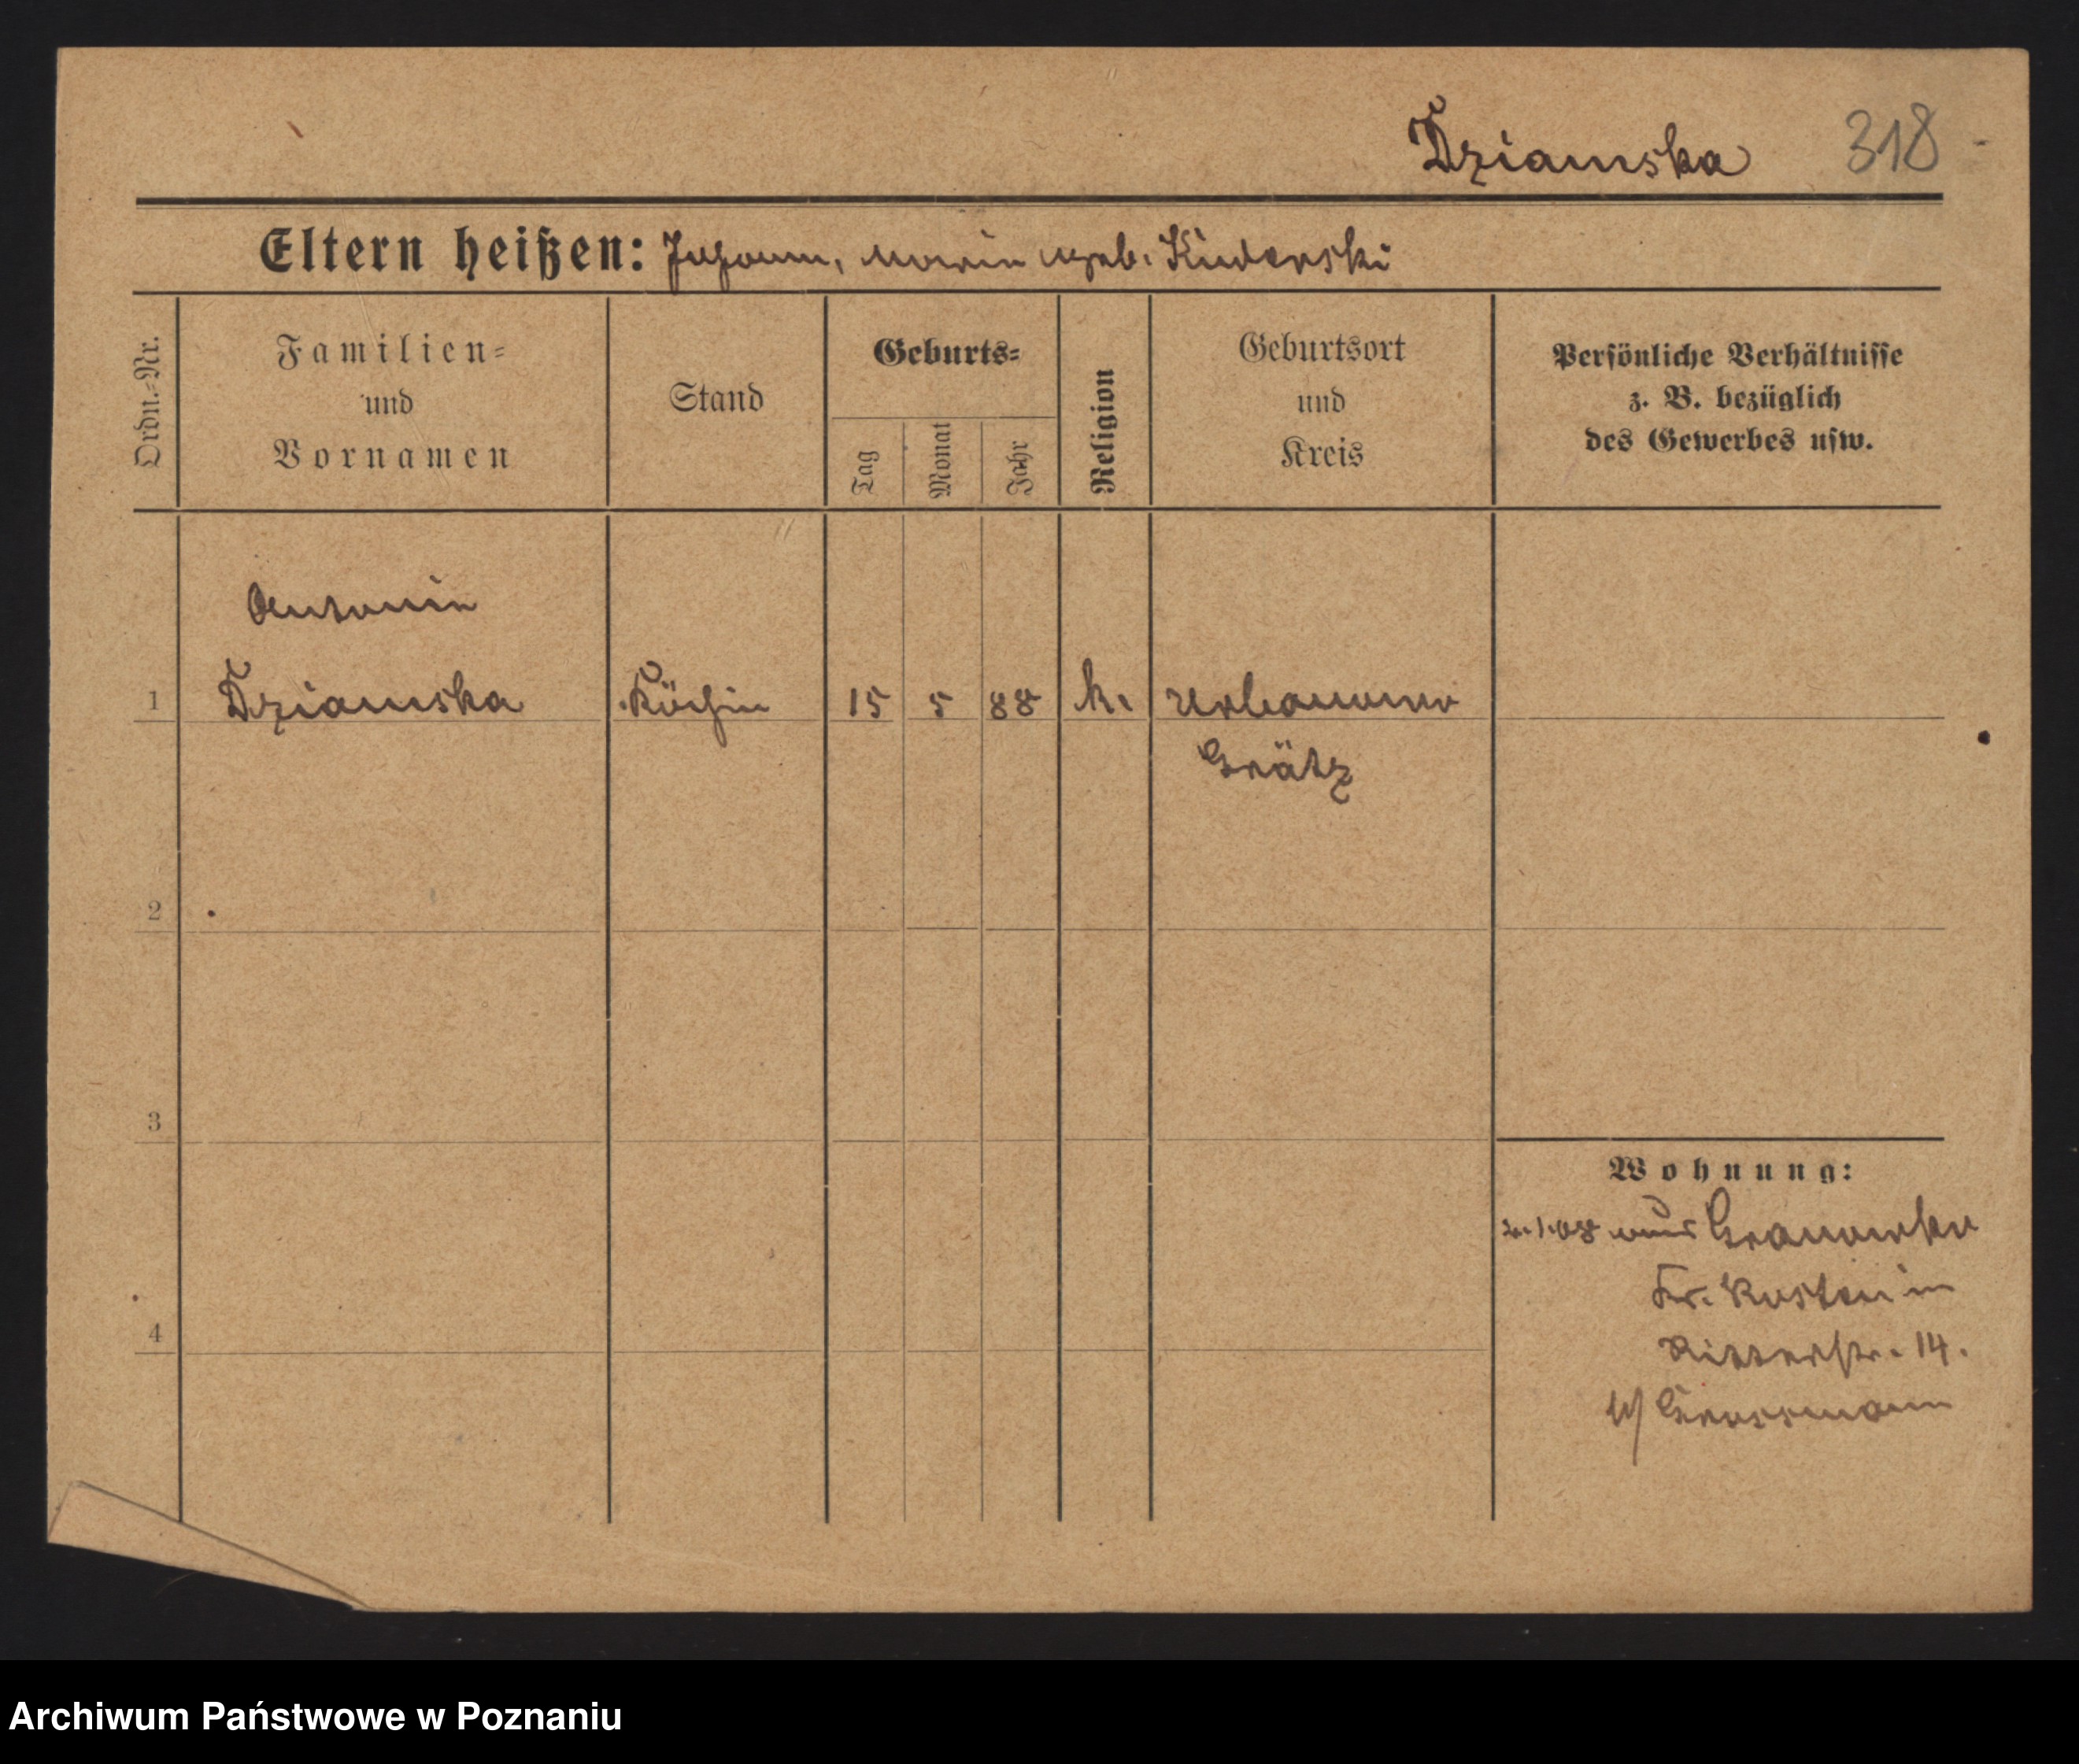 Dziamska 318
Eltern heißen: Johann, Marie geb. Kudenski
Ordn.-Nr.
Familien-
und
Vornamen
Stand
Geburts-
Tag
Monat
Jahr
Religion
Geburtsort
und
Kreis
Persönliche Verhältnisse
z. B. bezüglich
des Gewerbes usw.
Antonie
1 Dziamska Köchin 15 5 88 k. Urbanowo
Grätz
2
3
4
Wohnung:
2.1.08 aus Granowko
Kr. Kosten in
Ritterstr. 14.
b/ Grossmann
Archiwum Państwowe w Poznaniu